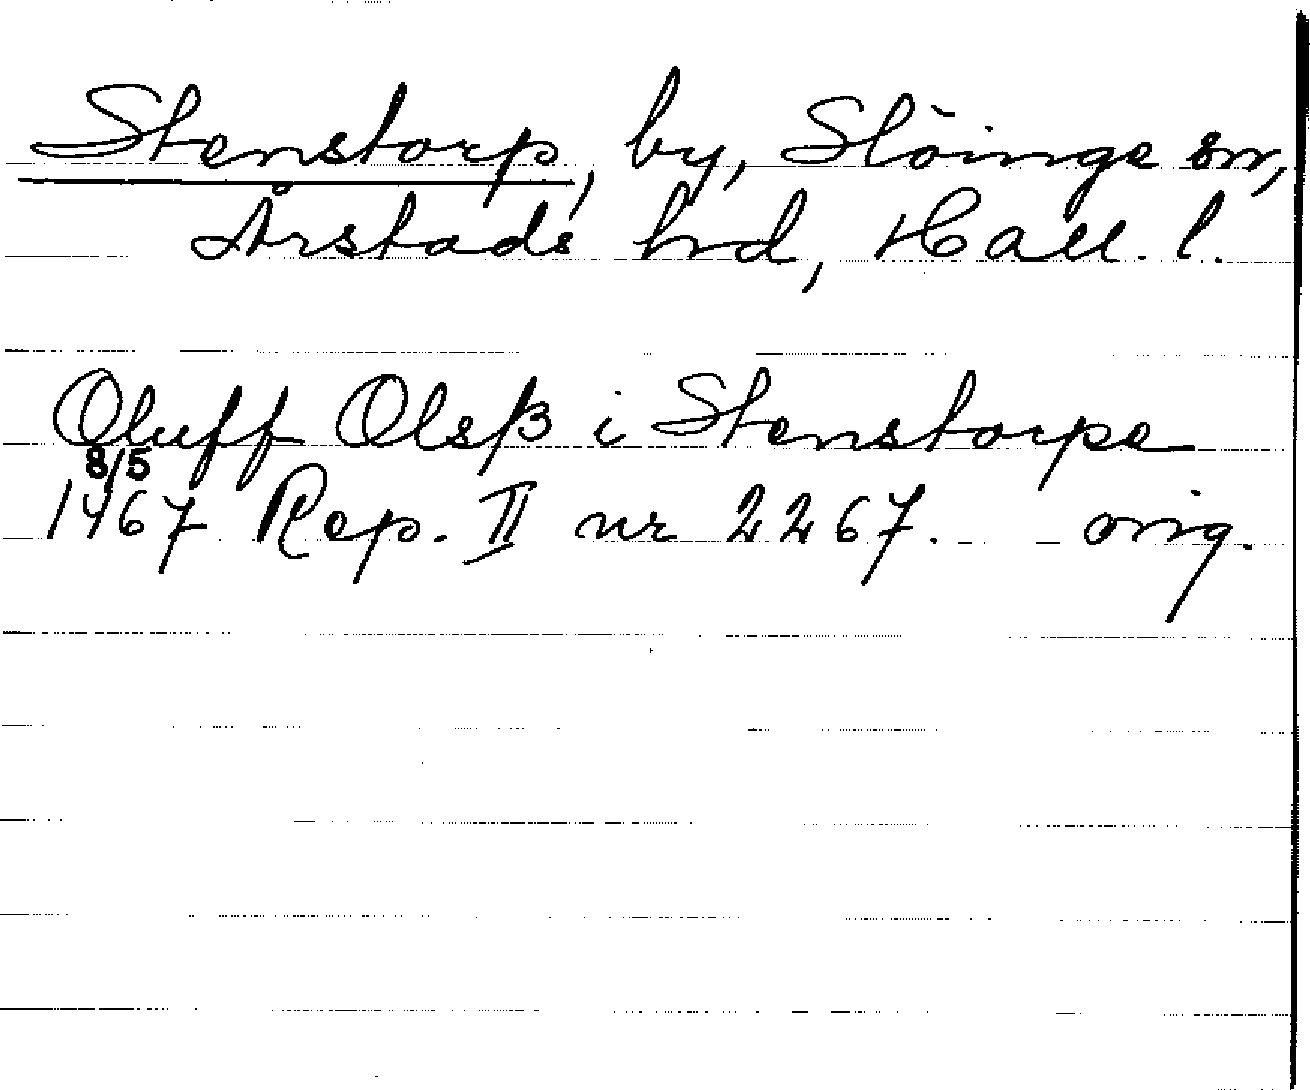 Stenstorp, by, Slöinge sn,
Årstads hrd, Hall. l.
Oluff Olsβ i Stenstorpe
8/5
1467 Rep. II nr 2267. orig.